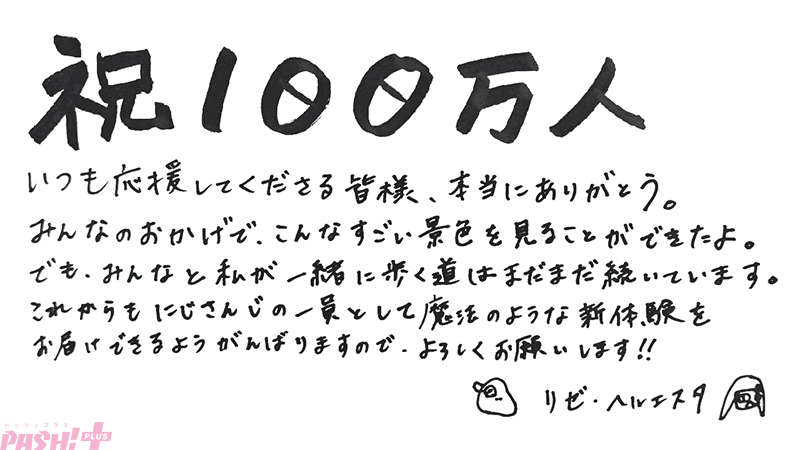 祝100万人
いつも応援してくださる皆様、本当にありがとう。
みんなのおかげで、こんなすごい景色を見ることができたよ。
でも、みんなと私が一緒に歩く道はまだまだ続いています。
これからもにじさんじの一員として魔法のような新体験を
お届けできるようがんばりますので、よろしくお願いします!!
リゼ・ヘルエスタ
パッシュプラス
PASH! PLUS